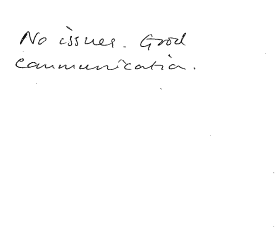 No issues. Good
Communication.